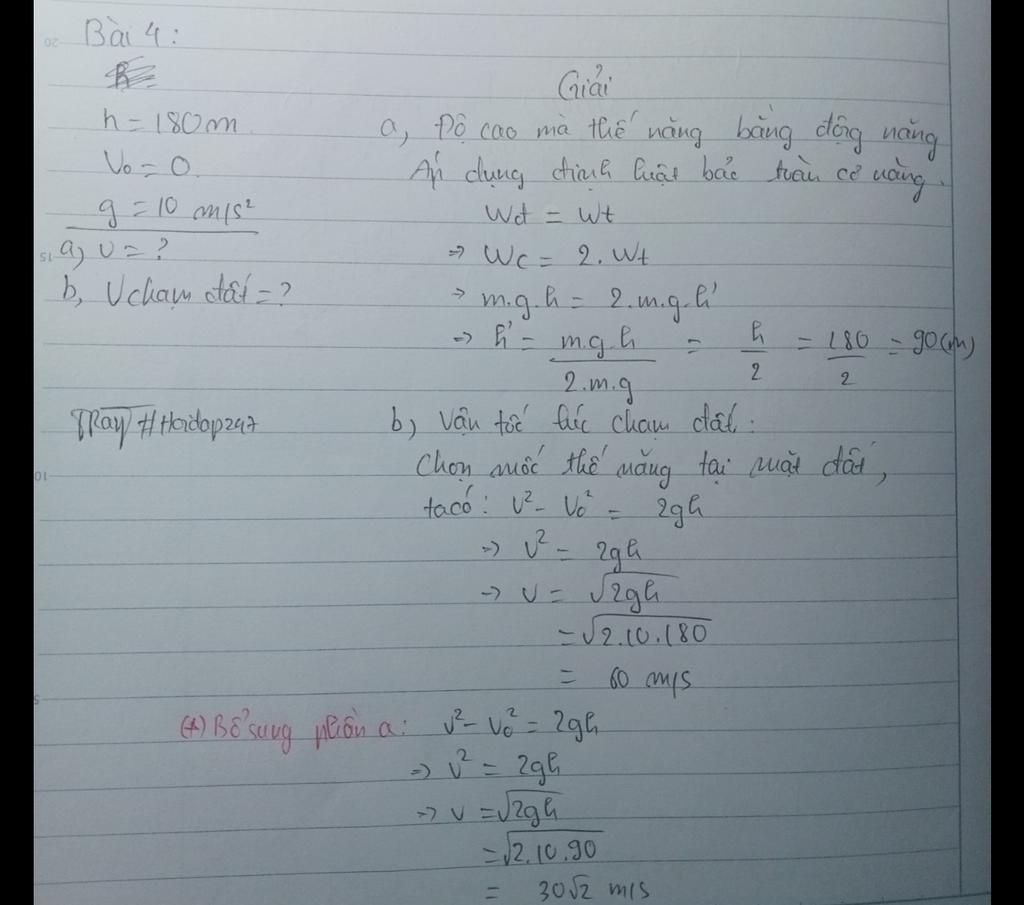 Bài 4:
h = 180m
V₀ = 0
g = 10 m/s²
a, v = ?
b, Vchạm đất = ?
Giải
a, Độ cao mà thế năng bằng động năng
Áp dụng định luật bảo toàn cơ năng.
Wđ = Wt
→ Wc = 2.Wt
→ m.g.h = 2.m.g.h'
→ h' = m.g.h / 2.m.g = h / 2 = 180 / 2 = 90(m)
TRay #Hoidap247
b) Vận tốc lúc chạm đất:
Chọn mốc thế năng tại mặt đất,
ta có: v² - v₀² = 2gh
→ v² = 2gh
→ v = √2gh
= √2.10.180
= 60 m/s
(*) Bổ sung phần a: v² - v₀² = 2gh
→ v² = 2gh
→ v = √2gh
= √2.10.90
= 30√2 m/s